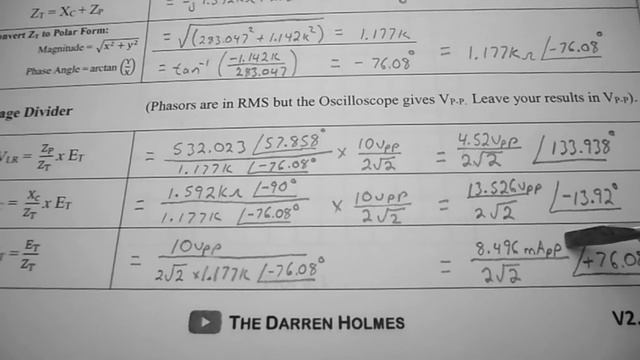 Z_T = X_C + Z_P
Convert Z_T to Polar Form:
Magnitude = √(x² + y²)
Phase Angle = arctan (Y/X)
= √(283.047² + 1.142K²) = 1.177K
= tan⁻¹ (-1.142K / 283.047) = -76.08°
= 1.177KΩ ∠-76.08°
age Divider
(Phasors are in RMS but the Oscilloscope gives V_P-P. Leave your results in V_P-P).
V_LR = Z_P/Z_T x E_T = 532.023 ∠57.858° / 1.177K ∠-76.08° × 10Vpp / 2√2 = 4.52Vpp / 2√2 ∠133.938°
= X_C/Z_T x E_T = 1.592KΩ ∠-90° / 1.177K ∠-76.08° × 10Vpp / 2√2 = 13.526Vpp / 2√2 ∠-13.92°
= E_T/Z_T = 10Vpp / 2√2 × 1.177K ∠-76.08° = 8.496mApp / 2√2 ∠+76.08
THE DARREN HOLMES
V2.